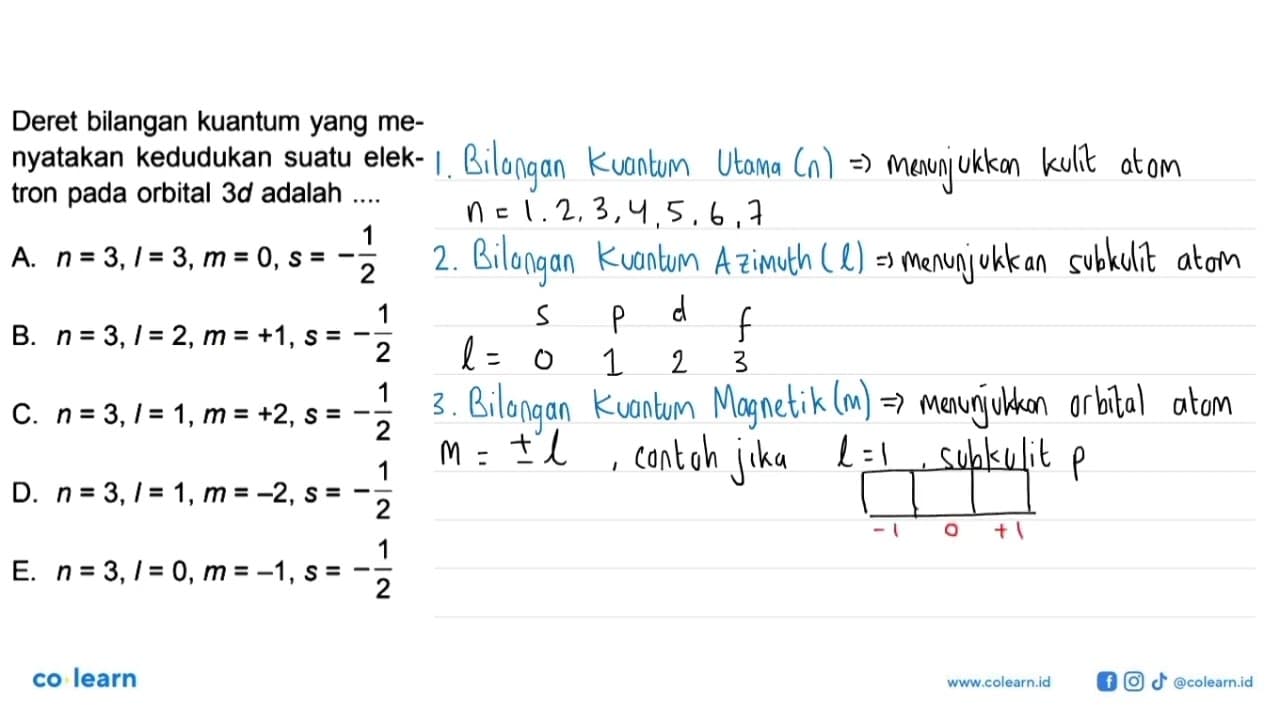 Deret bilangan kuantum yang me-
nyatakan kedudukan suatu elek-
tron pada orbital 3d adalah ....
A. n = 3, l = 3, m = 0, s = -1/2
B. n = 3, l = 2, m = +1, s = -1/2
C. n = 3, l = 1, m = +2, s = -1/2
D. n = 3, l = 1, m = –2, s = -1/2
E. n = 3, l = 0, m = –1, s = -1/2
1. Bilangan Kuantum Utama (n) => menunjukkan kulit atom
n = 1. 2, 3, 4, 5, 6, 7
2. Bilangan Kuantum Azimuth (l) => menunjukkan subkulit atom
s p d f
l = 0 1 2 3
3. Bilangan Kuantum Magnetik (m) => menunjukkan orbital atom
m = ± l , contoh jika l = 1 , subkulit p
-1 0 +1
co learn
www.colearn.id
@colearn.id